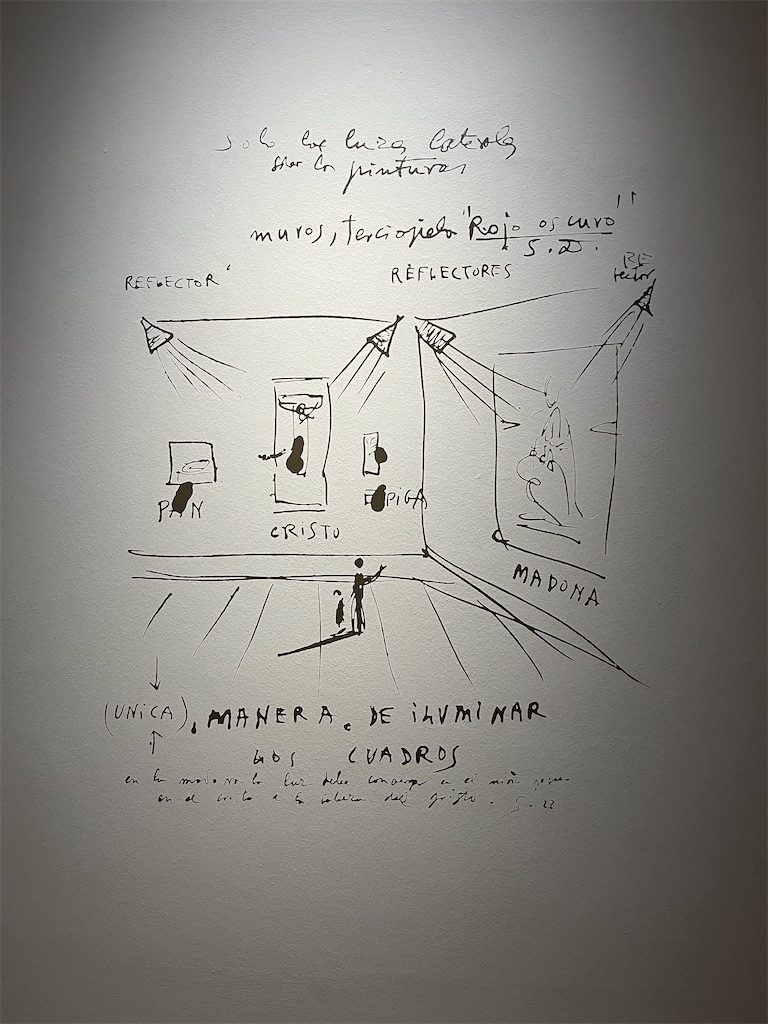 solo los luces laterales
sobre los pinturas
muros, terciopelo "Rojo oscuro"
S.D.
REFLECTOR
REFLECTORES
RE
flector
PAN
CRISTO
ESPIGA
MADONA
(UNICA), MANERA. DE ILUMINAR
LOS CUADROS
en la madona la luz debe converger en el niño
en el cristo a la cabeza del